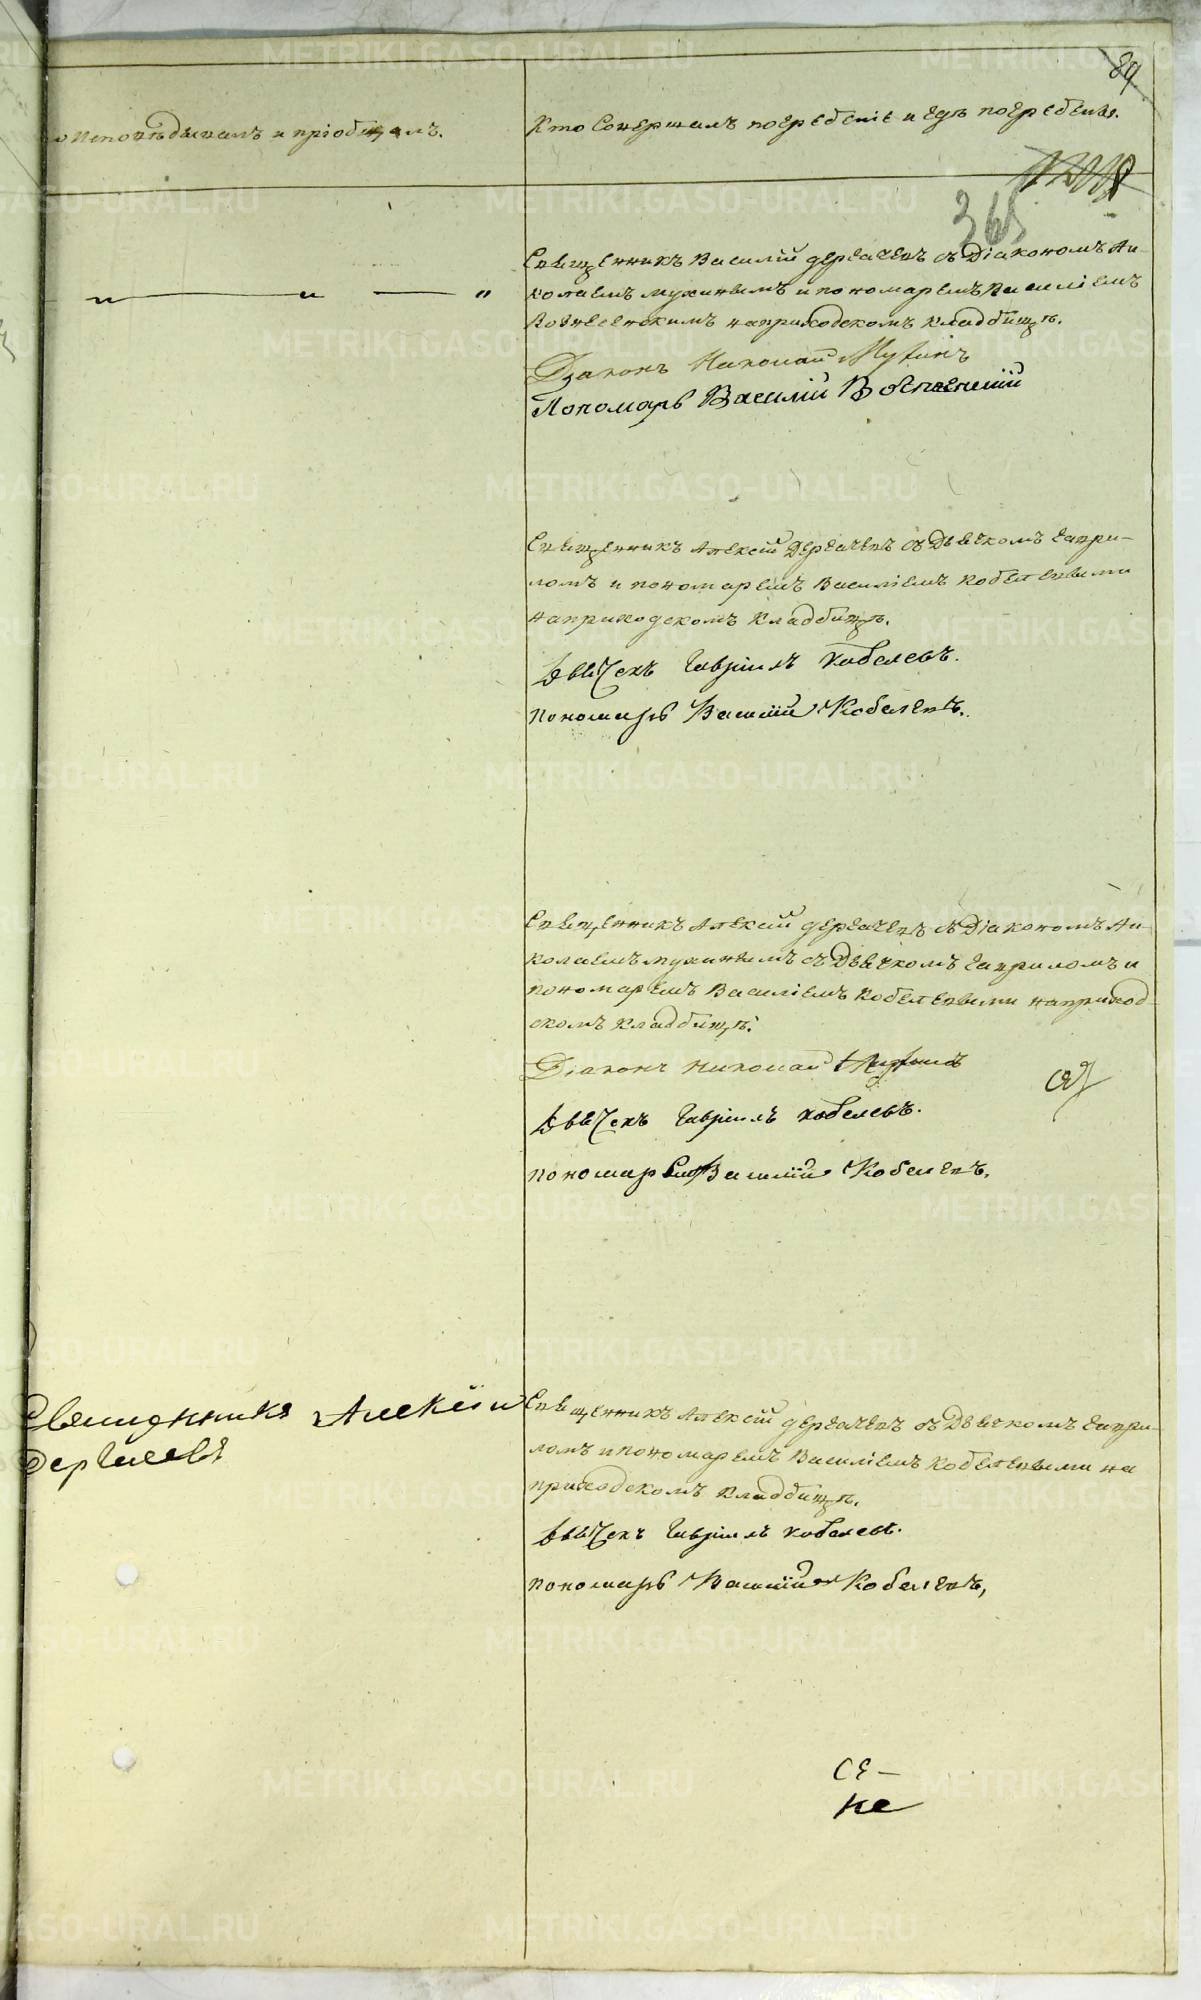 89
Исповѣдывалъ и пріобщалъ.
Кто Совершалъ погребеніе и гдѣ погребены.
365
Священникъ Василій Дергачевъ съ Діакономъ Ни-
колаемъ Мухинымъ и пономаремъ Василіемъ
Вознесенскимъ на приходскомъ кладбищѣ.
Діаконъ Николай Мухинъ
Пономарь Василій Вознесенскій
Священникъ Алексій Дергачевъ съ Дьячкомъ Гаври-
ломъ и пономаремъ Василіемъ Кобелевыми
на приходскомъ кладбищѣ.
Дьячекъ Гавріилъ Кобелевъ.
пономарь Василій Кобелевъ.
Священникъ Алексій Дергачевъ съ Діакономъ Ни-
колаемъ Мухинымъ съ Дьячкомъ Гавриломъ и
пономаремъ Василіемъ Кобелевыми на приход-
скомъ кладбищѣ.
Діаконъ Николай Мухинъ
Дьячекъ Гавріилъ Кобелевъ.
пономарь Василій Кобелевъ.
Священникъ Алексѣй
Дергачевъ
Священникъ Алексій Дергачевъ съ Дьячкомъ Гаври-
ломъ и пономаремъ Василіемъ Кобелевыми на
приходскомъ кладбищѣ.
Дьячекъ Гавріилъ Кобелевъ.
пономарь Василій Кобелевъ,
СЕ-
ке